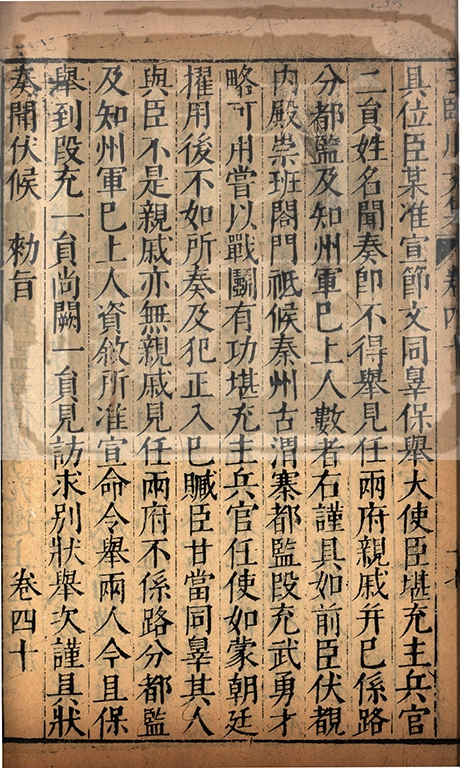 具位臣某准宣節文同辠保舉大使臣堪充主兵官
二員姓名聞奏卽不得舉見任兩府親戚幷已係路
分都監及知州軍已上人數者右謹具如前臣伏覩
內殿崇班閤門祗候秦州古渭寨都監段充武勇才
略可用嘗以戰鬭有功堪充主兵官任使如蒙朝廷
擢用後不如所奏及犯正入已贓臣甘當同辠其人
與臣不是親戚亦無親戚見任兩府不係路分都監
及知州軍已上人資敘所准宣命令舉兩人今且保
舉到段充一員尚闕一員見訪求別狀舉次謹具狀
奏聞伏候 勑旨
卷四十